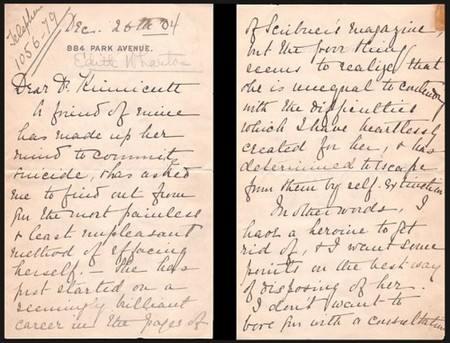 Telephone
1056-79
Dec. 26th 04
884 PARK AVENUE.
Edith Wharton
Dear Dr Kinnicutt
A friend of mine
has made up her
mind to commit
suicide, & has asked
me to find out from
you the most painless
& least unpleasant
method of effacing
herself. — She has
just started on a
seemingly brilliant
career in the pages of
of Scribner's magazine,
but the poor thing
seems to realize that
she is unequal to contending
with the difficulties
which I have heartlessly
created for her, & has
determined to escape
from them by self-extinction
In other words, I
have a heroine to get
rid of, & I want some
points on the best way
of disposing of her.
I don't want to
bore you with a consultation